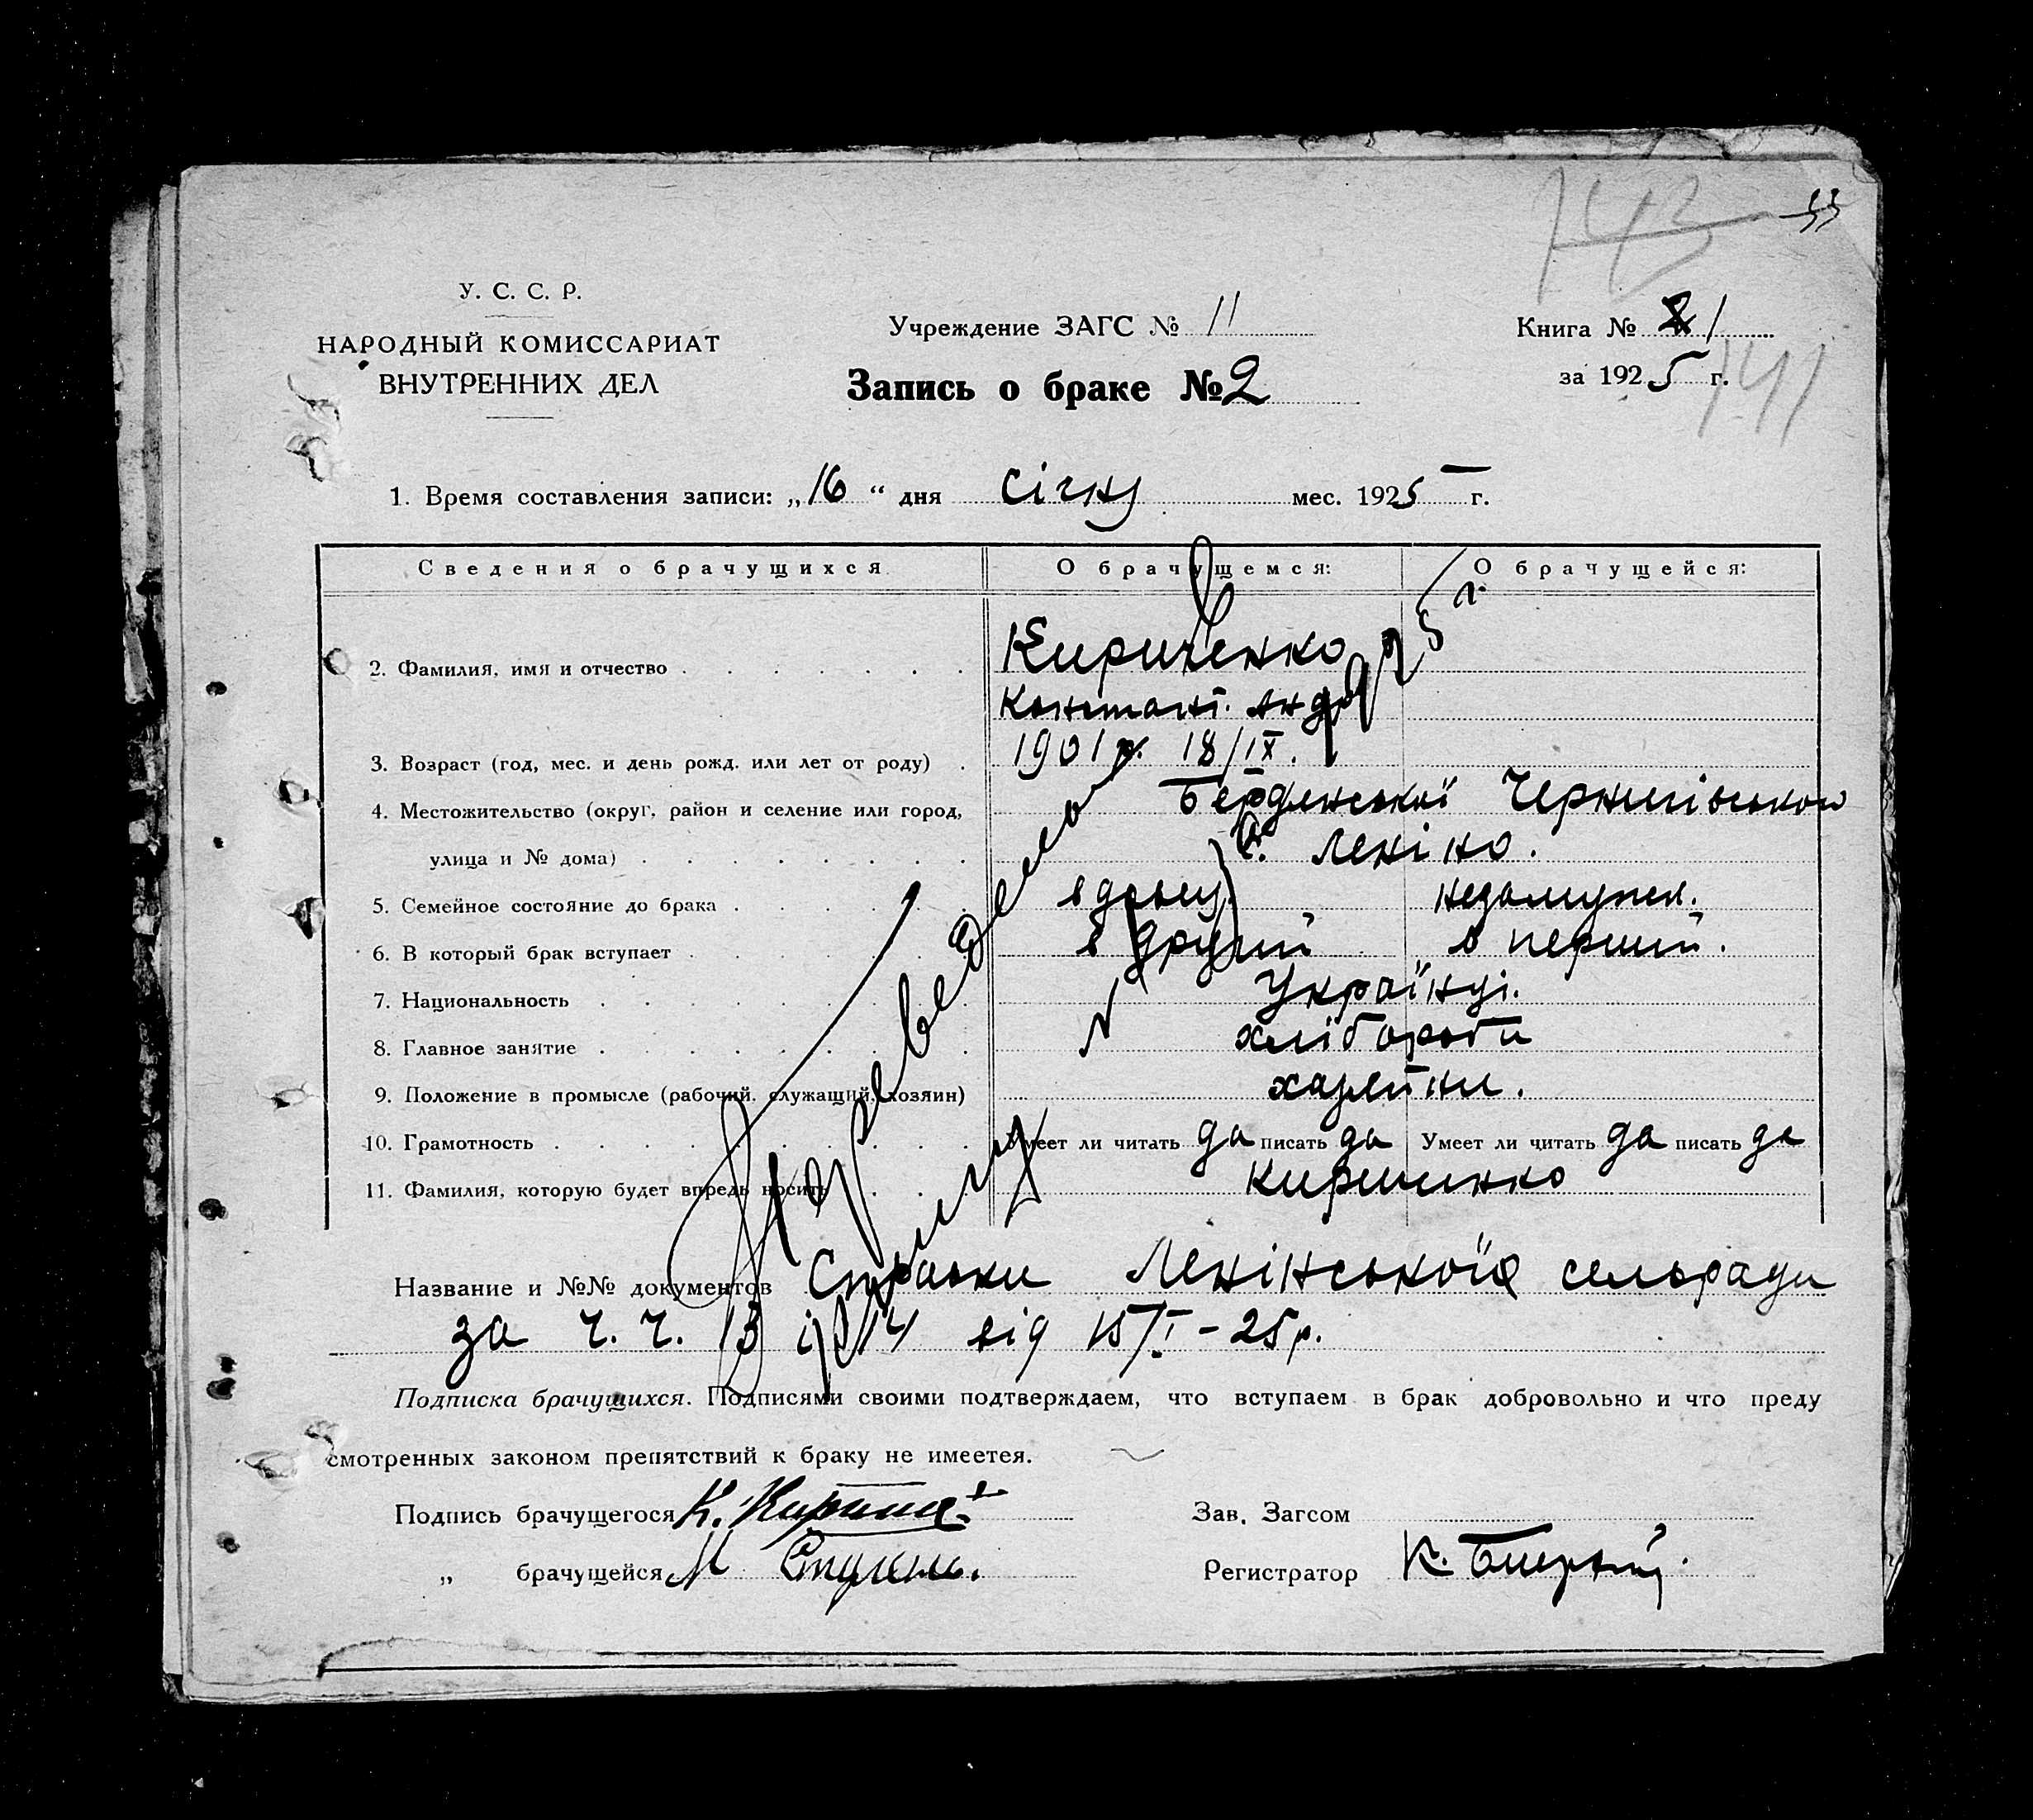 743 33
У. С. С. Р.
НАРОДНЫЙ КОМИССАРИАТ
ВНУТРЕННИХ ДЕЛ
Учреждение ЗАГС № 11
Запись о браке № 2
Книга № 1
за 1925 г.
741
1. Время составления записи: „16“ дня січня мес. 1925 г.
Сведения о брачущихся О брачущемся: О брачущейся:
2. Фамилия, имя и отчество Кириченко
Констант. Андр
3. Возраст (год, мес. и день рожд. или лет от роду) 1901 р. 18/IX.
4. Местожительство (округ, район и селение или город, Бердянської Чернигівського
улица и № дома) с. Леніно.
5. Семейное состояние до брака вдовец незамужня.
6. В который брак вступает в другий в перший.
7. Национальность Українці.
8. Главное занятие хлібороби
9. Положение в промысле (рабочий, служащий, хозяин) хазяїни.
10. Грамотность Умеет ли читать да писать да Умеет ли читать да писать да
11. Фамилия, которую будет впредь носить Кириченко
Название и №№ документов Справки Ленінської сельради
за ч. ч. 13 і 14 від 15/I-25 р.
Подписка брачущихся. Подписями своими подтверждаем, что вступаем в брак добровольно и что преду
смотренных законом препятствий к браку не имеетея.
Подпись брачущегося К.
„ брачущейся М
Зав. Загсом
Регистратор К.